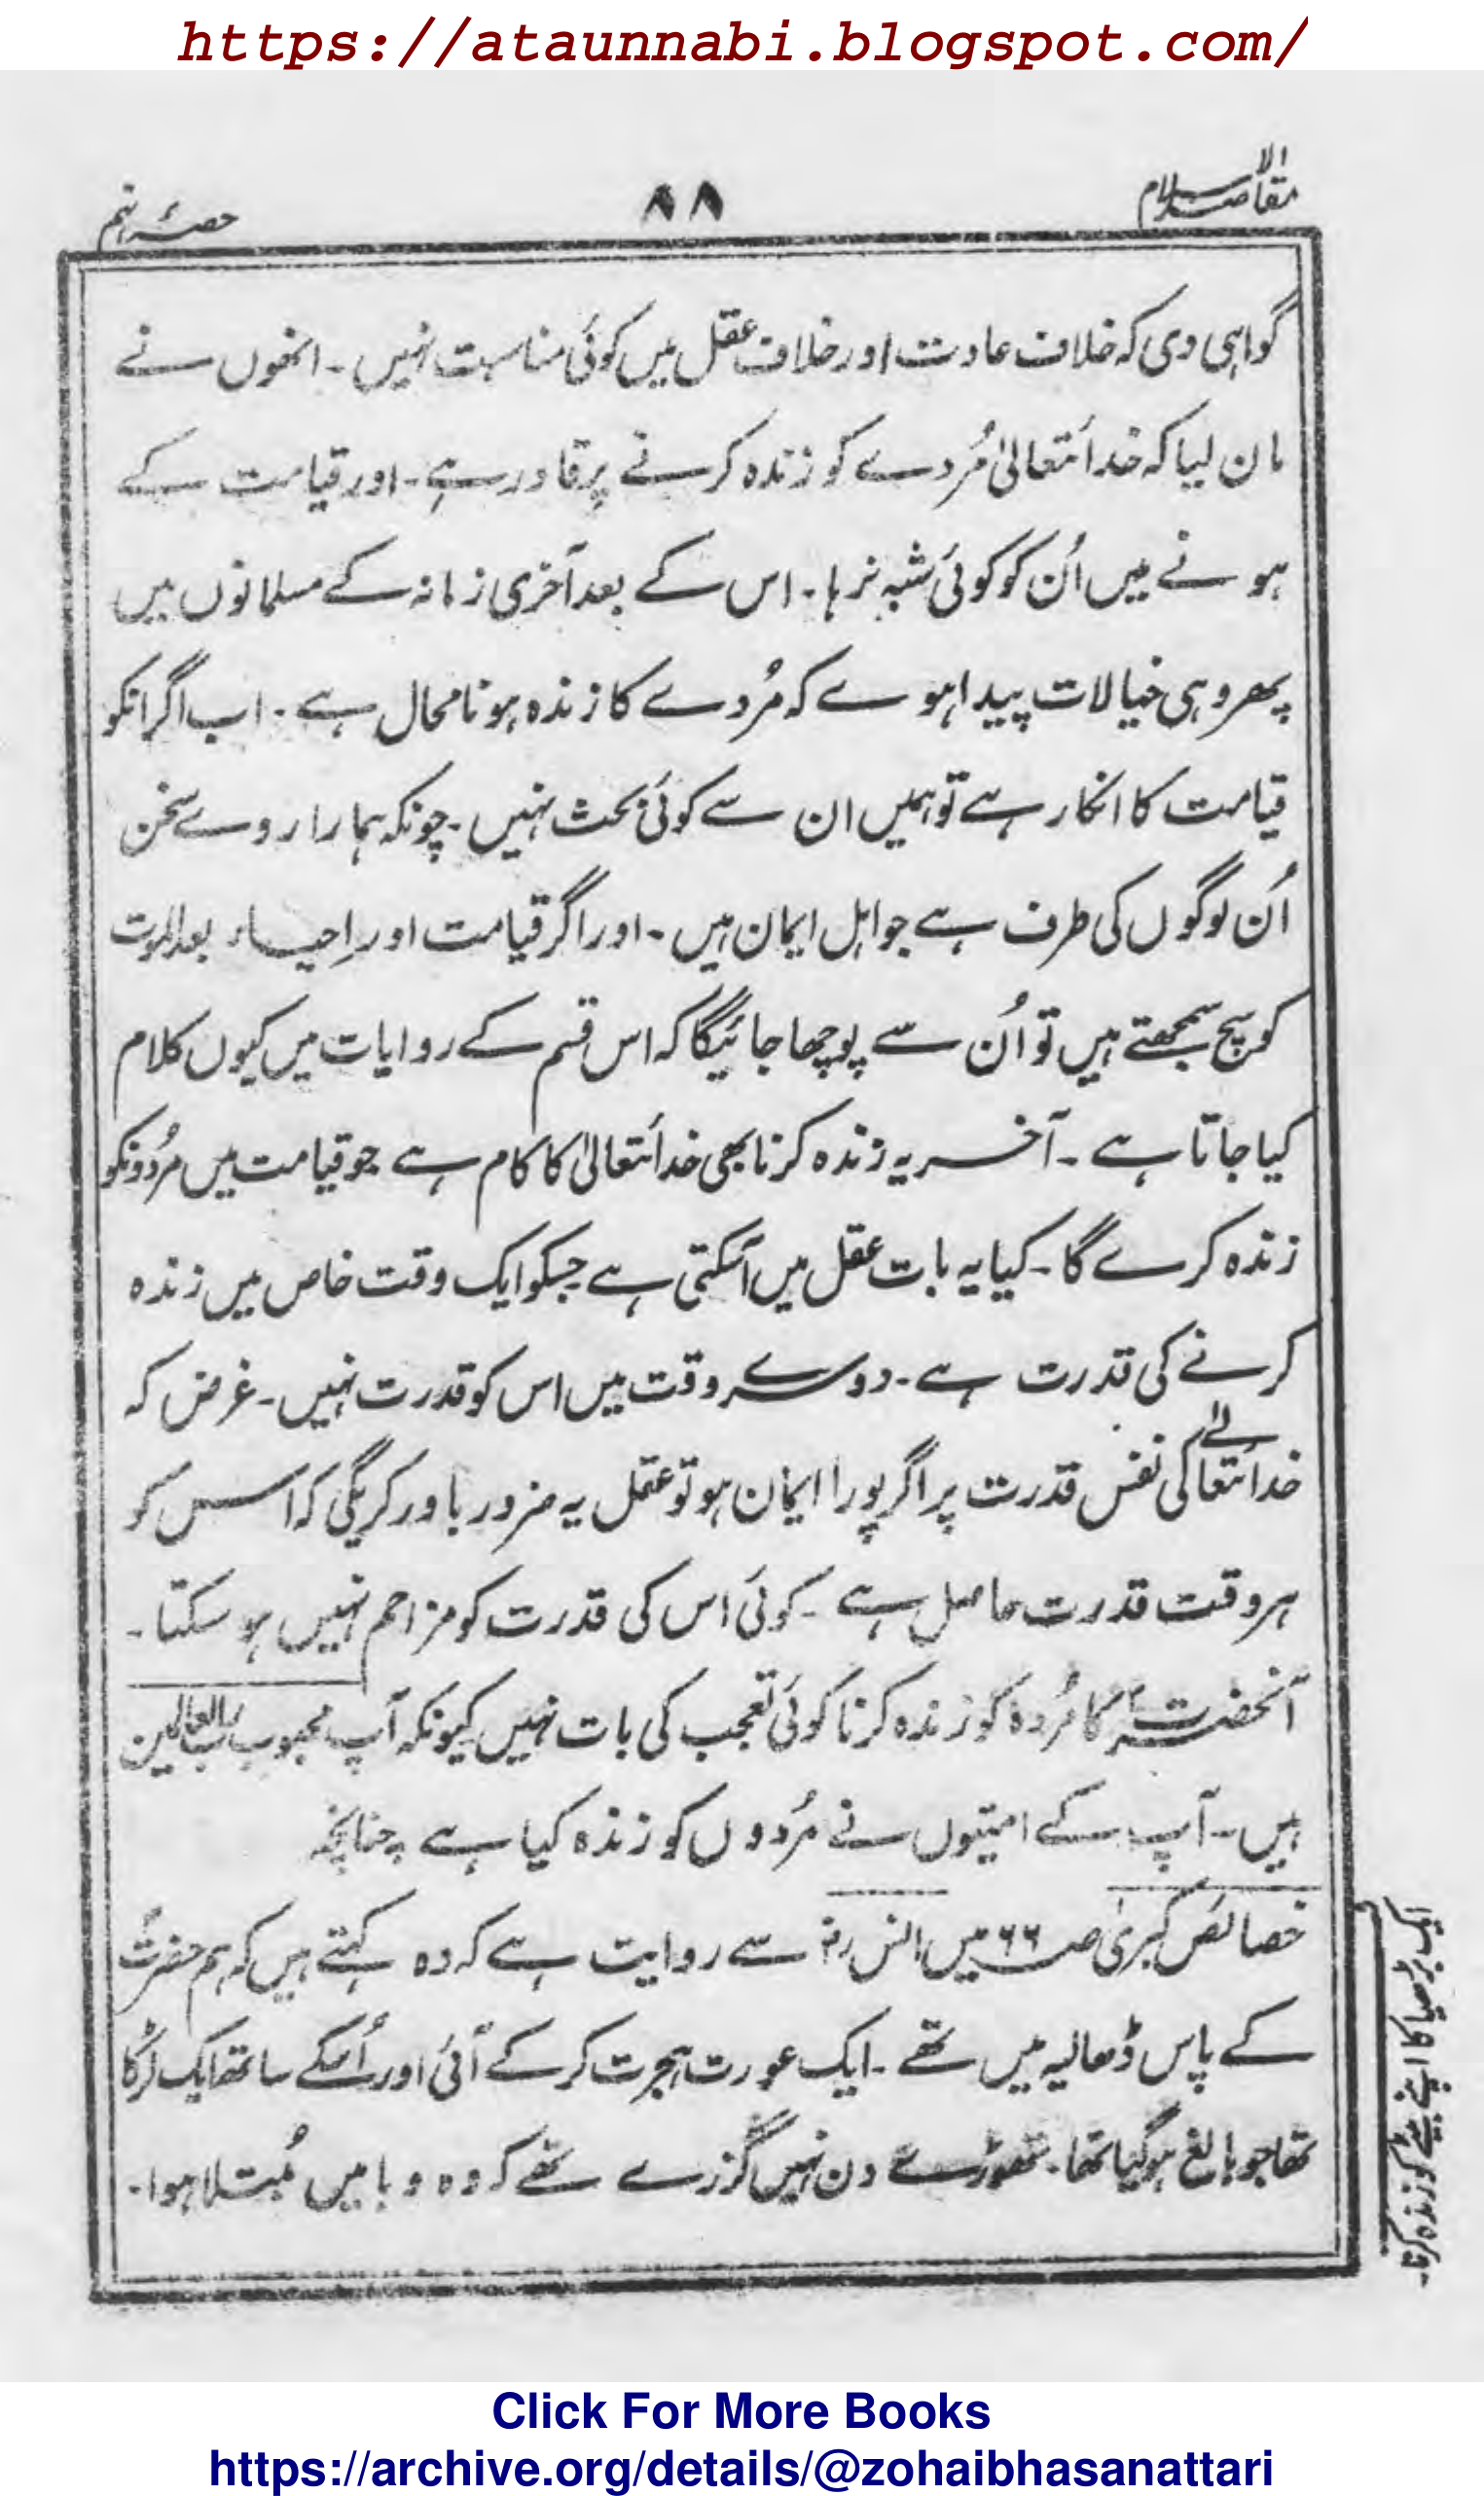 https://ataunnabi.blogspot.com/
مقاصد الاسلام
۸۸
حصۂ نہم
گواہی دی کہ خلاف عادت اور خلاف عقل میں کوئی مناسبت نہیں ۔ انھوں نے
مان لیا کہ خدا تعالیٰ مُردے کو زندہ کرنے پر قادر ہے ۔ اور قیامت کے
ہونے میں اُن کو کوئی شبہ نرہا ۔ اس کے بعد آخری زمانہ کے مسلمانوں میں
پھر وہی خیالات پیدا ہوے کہ مُردے کا زندہ ہونا محال ہے ۔ اب اگر انکو
قیامت کا انکار ہے تو ہمیں ان سے کوئی بحث نہیں ۔ چونکہ ہمارا روے سخن
اُن لوگوں کی طرف ہے جو اہل ایمان ہیں ۔ اور اگر قیامت اور اِحیاء بعد الموت
کو سچ سمجھتے ہیں تو اُن سے پوچھا جائیگا کہ اس قسم کے روایات میں کیوں کلام
کیا جاتا ہے ۔ آخر یہ زندہ کرنا بھی خدا تعالیٰ کا کام ہے جو قیامت میں مُردونکو
زندہ کرے گا ۔ کیا یہ بات عقل میں آسکتی ہے جسکو ایک وقت خاص میں زندہ
کرنے کی قدرت ہے ۔ دوسرے وقت میں اس کو قدرت نہیں ۔ غرض کہ
خدا تعالےٰ کی نفس قدرت پر اگر پورا ایمان ہو تو عقل یہ ضرور باور کریگی کہ اس کو
ہر وقت قدرت حاصل ہے ۔ کوئی اس کی قدرت کو مزاحم نہیں ہو سکتا ۔
آنحضرت کا مُردہ کو زندہ کرنا کوئی تعجب کی بات نہیں کیونکہ آپ محبوب رب العالمین
ہیں ۔ آپ کے امتیوں نے مُردوں کو زندہ کیا ہے چنانچہ
خصائص کبریٰ صـ ۶۶ میں انس رضہ سے روایت ہے کہ وہ کہتے ہیں کہ ہم حضرتؐ
کے پاس ڈھالیہ میں تھے ۔ ایک عورت ہجرت کرکے آئی اور اُسکے ساتھ ایک لڑکا
تھا جو بالغ ہوگیا تھا ۔ تھوڑے دن نہیں گزرے تھے کہ وہ وبا میں مُبتلا ہوا ۔
ایک بڑھیا کا اپنے بیٹے کو زندہ کرنا ۔
Click For More Books
https://archive.org/details/@zohaibhasanattari